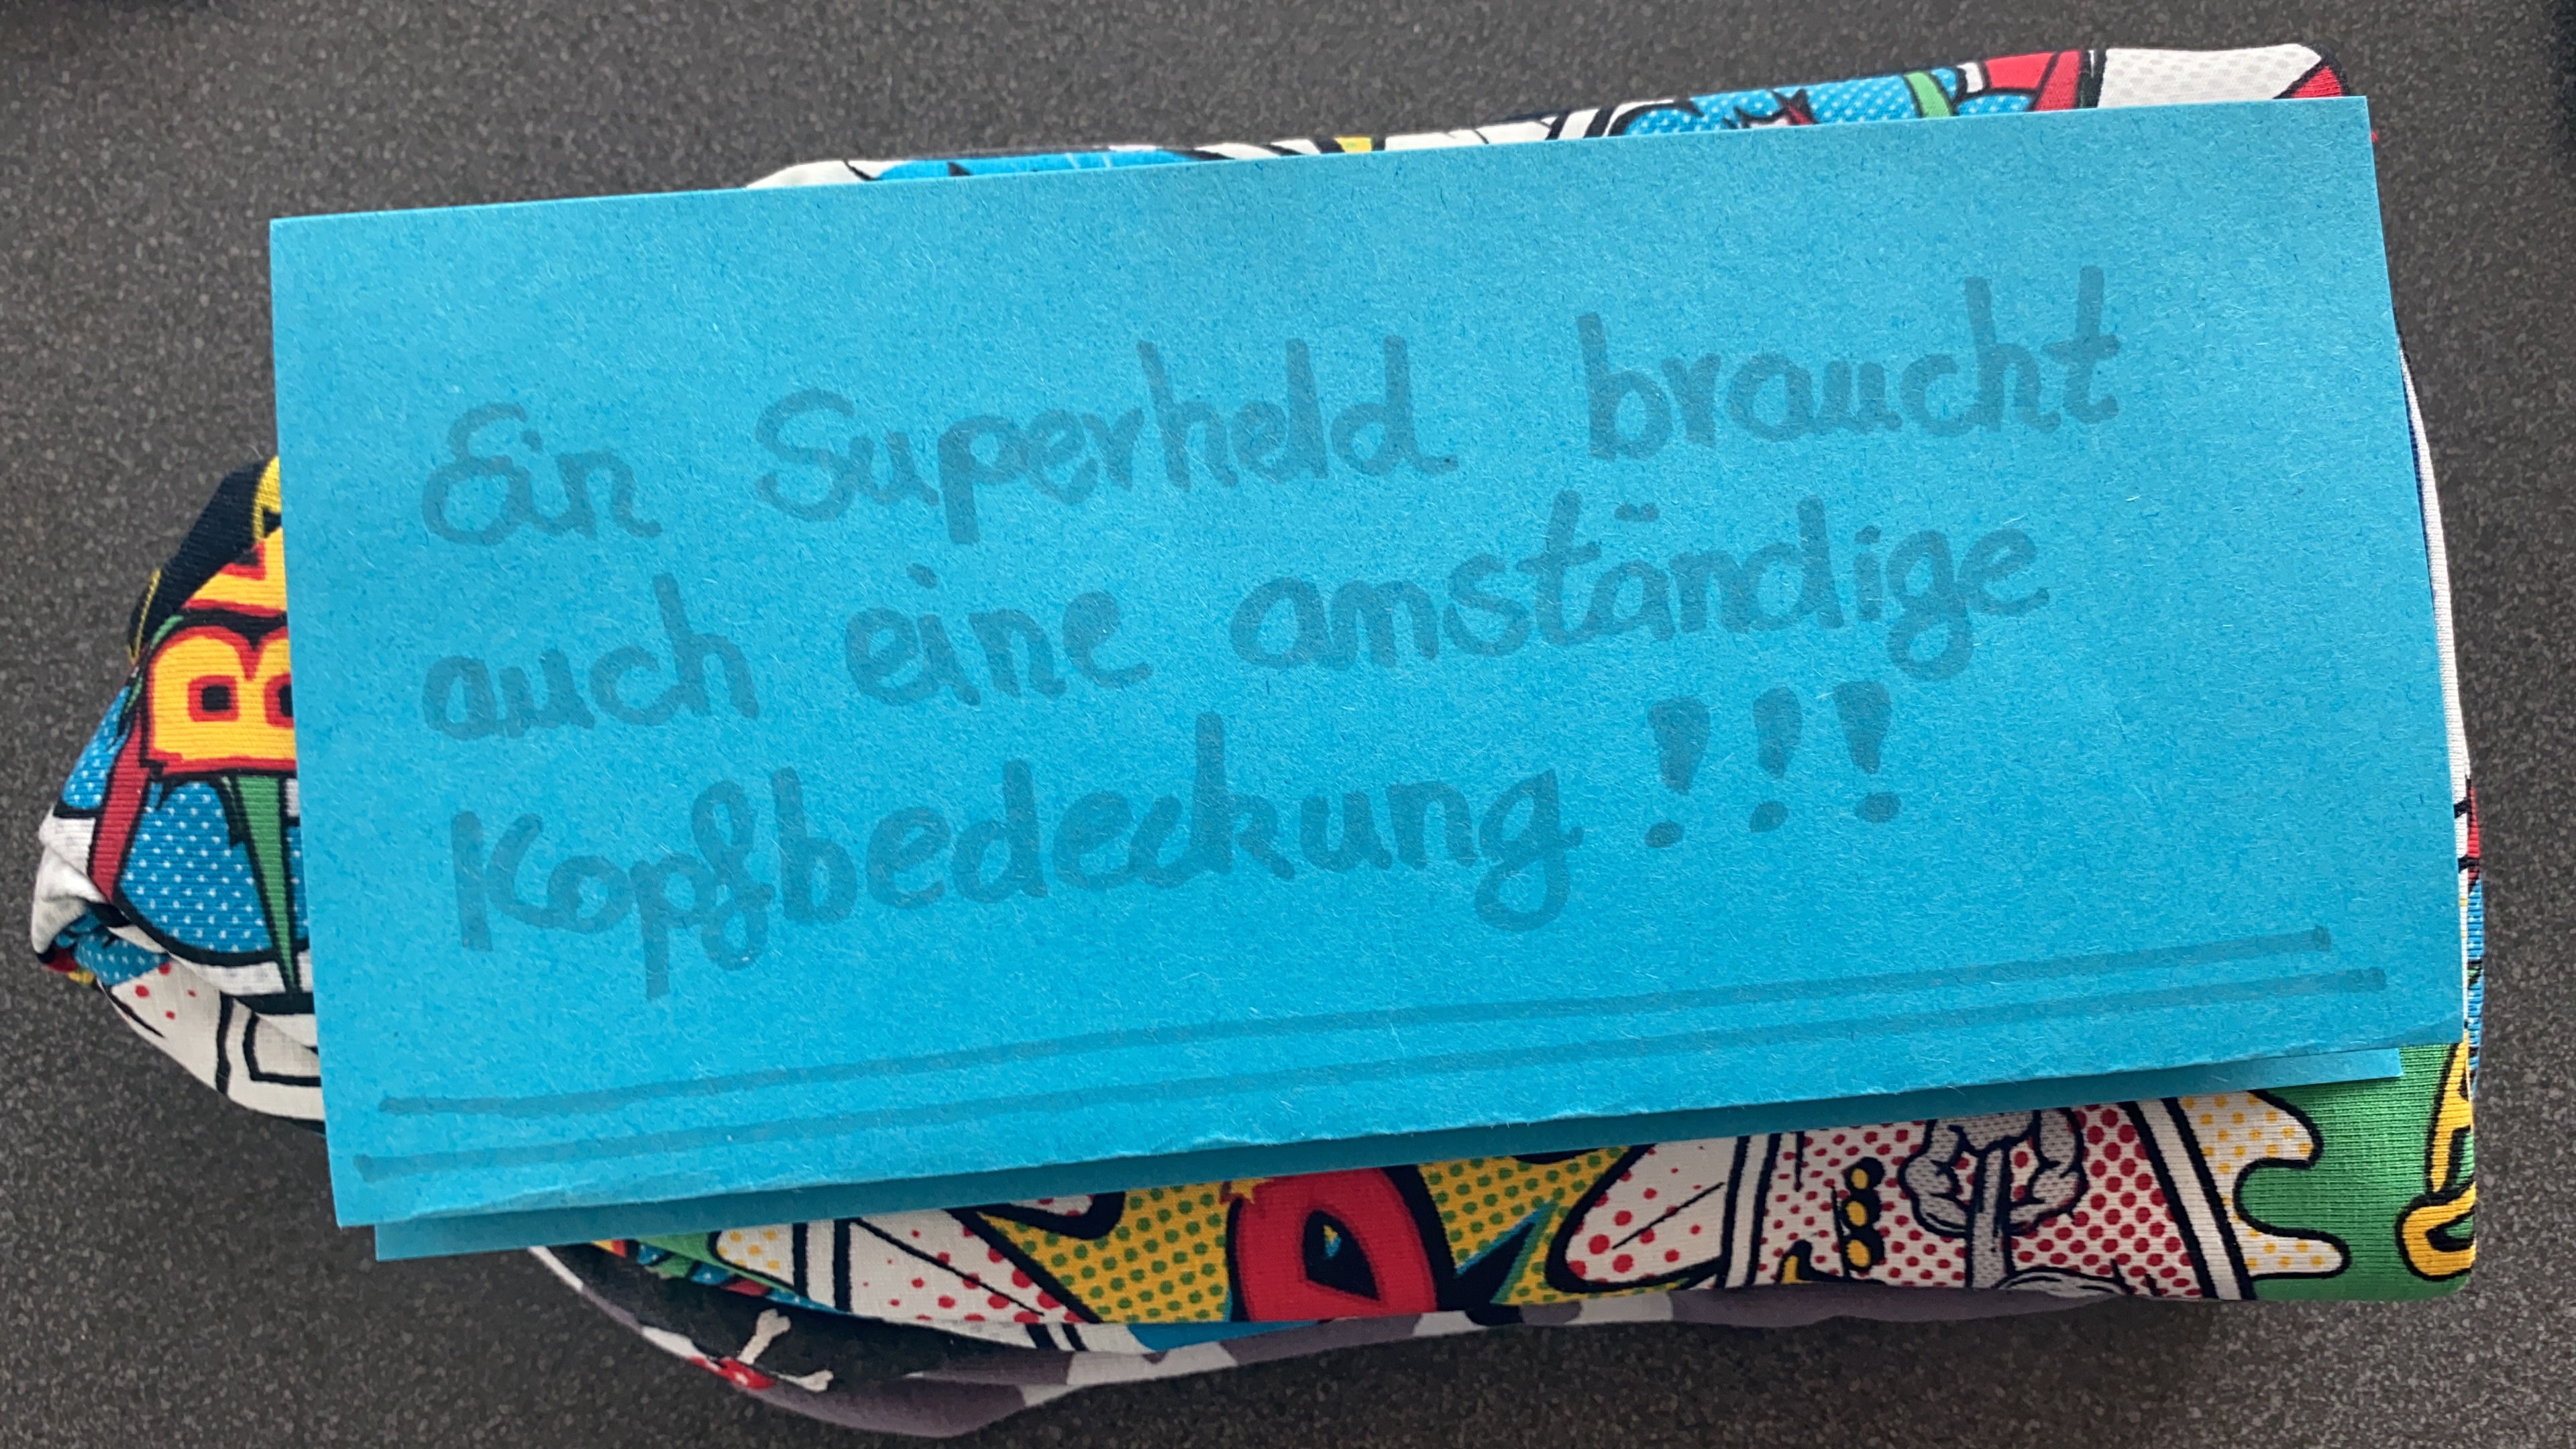 Ein Superheld braucht
auch eine anständige
Kopfbedeckung !!!
B